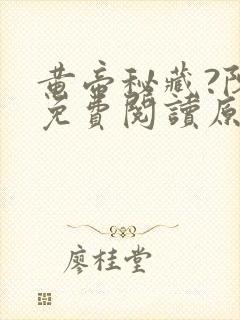 黄帝秘藏?阝
免費閱讀原
廖桂堂